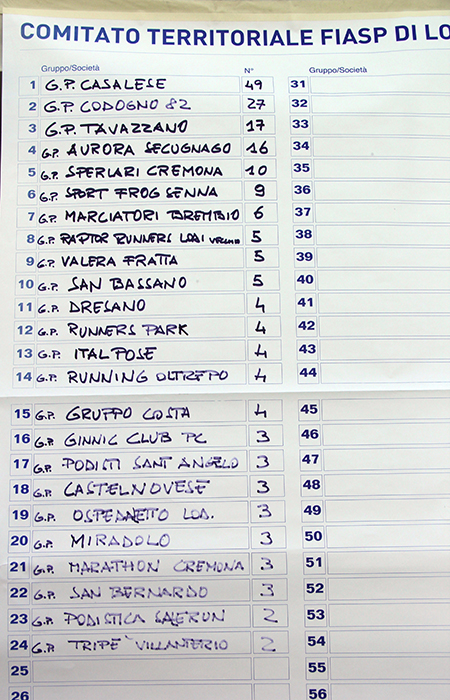 COMITATO TERRITORIALE FIASP DI LO
Gruppo/Società N° Gruppo/Società
1 G.P. CASALESE 49 31
2 G.P. CODOGNO 82 27 32
3 G.P. TAVAZZANO 17 33
4 G.P. AURORA SECUGNAGO 16 34
5 G.P. SPERLARI CREMONA 10 35
6 G.P. SPORT FROG SENNA 9 36
7 G.P. MARCIATORI BREMBIO 6 37
8 G.P. RAPTOR RUNNERS LODI VECCHIO 5 38
9 G.P. VALERA FRATTA 5 39
10 G.P. SAN BASSANO 5 40
11 G.P. DRESANO 4 41
12 G.P. RUNNERS PARK 4 42
13 G.P. ITALPOSE 4 43
14 G.P. RUNNING OLTREPO 4 44
15 G.P. GRUPPO COSTA 4 45
16 G.P. GINNIC CLUB PC 3 46
17 G.P. PODISTI SANT ANGELO 3 47
18 G.P. CASTELNOVESE 3 48
19 G.P. OSPEDALETTO LOD. 3 49
20 G.P. MIRADOLO 3 50
21 G.P. MARATHON CREMONA 3 51
22 G.P. SAN BERNARDO 3 52
23 G.P. PODISTICA 2 53
24 G.P. TRIPE' VILLANTERIO 2 54
25 55
26 56